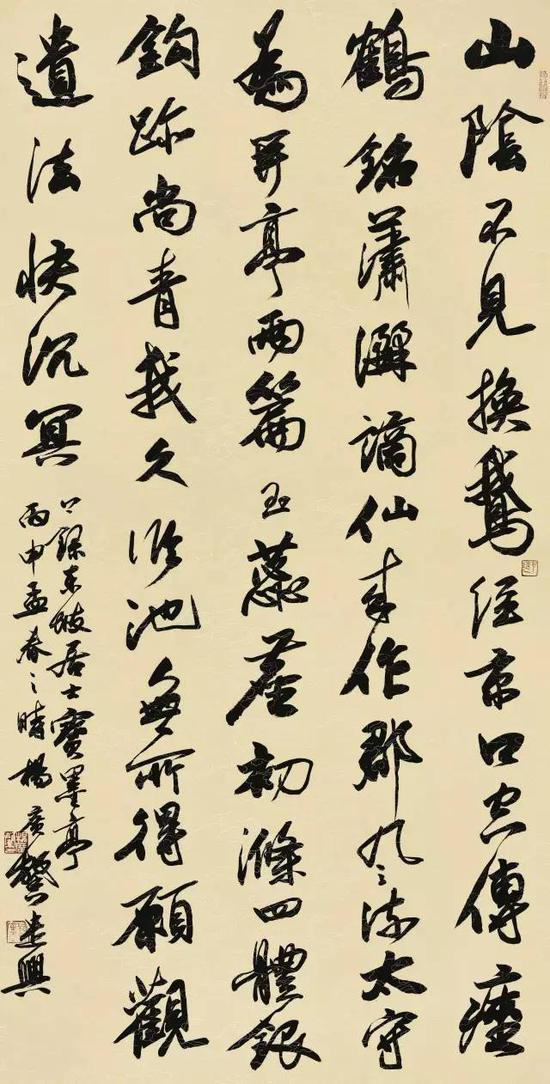 山陰不見換鵝經京口空傳瘞
鶴銘瀟灑謫仙來作郡風流太守
為開亭兩篇玉蕊塵初滌四體銀
鈎跡尚青我久臨池無所得願觀
遺法快沉冥
錄東坡居士寶墨亭
丙申孟春之時楊廣馨興